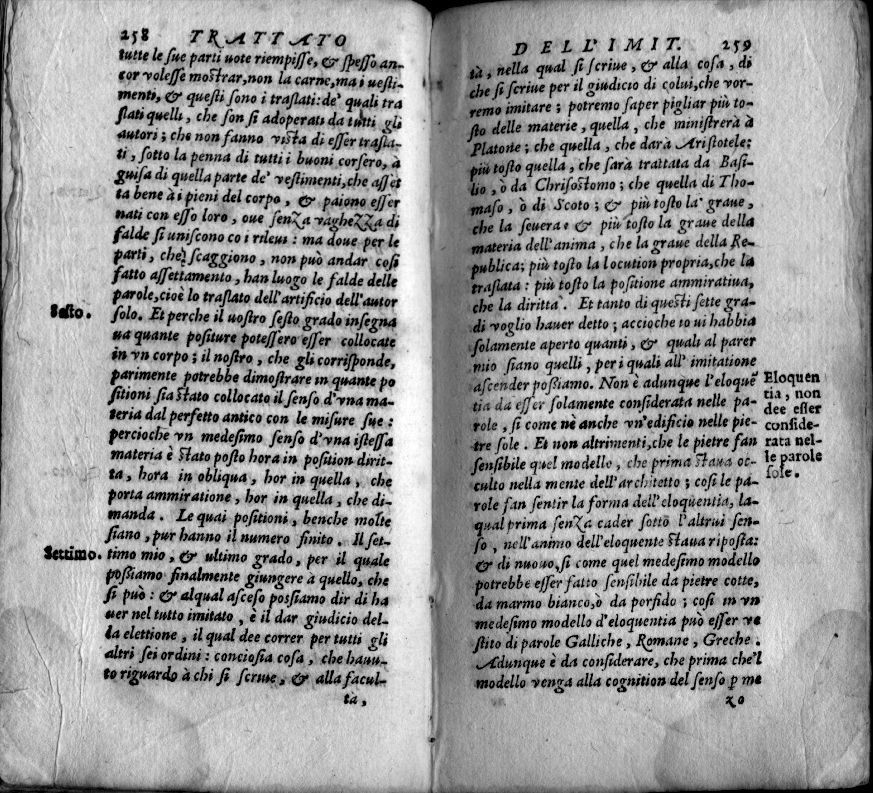 258 TRATTATO
tutte le sue parti uote riempisse, & spesso an-
cor volesse mostrar, non la carne, ma i uesti-
menti, & questi sono i traslati: de' quali tra
slati quelli, che son si adoperati da tutti gli
autori; che non fanno vista di esser trasla-
ti, sotto la penna di tutti i buoni corsero, à
guisa di quella parte de' vestimenti, che asset
ta bene à i pieni del corpo, & paiono esser
nati con esso loro, oue senza vaghezza di
falde si uniscono co i rileui: ma doue per le
parti, che scaggiono, non può andar cosi
fatto assettamento, han luogo le falde delle
parole, cioè lo traslato dell'artificio dell'autor
Sesto.
solo. Et perche il uostro sesto grado insegna
ua quante positure potessero esser collocate
in vn corpo; il nostro, che gli corrisponde,
parimente potrebbe dimostrare in quante po
sitioni sia stato collocato il senso d'vna ma-
teria dal perfetto antico con le misure sue:
percioche vn medesimo senso d'vna istessa
materia è stato posto hora in position dirit-
ta, hora in obliqua, hor in quella, che
porta ammiratione, hor in quella, che di-
manda. Le quai positioni, benche molte
siano, pur hanno il numero finito. Il set-
Settimo.
timo mio, & ultimo grado, per il quale
possiamo finalmente giungere à quello, che
si può: & alqual asceso possiamo dir di ha
uer nel tutto imitato, è il dar giudicio del-
la elettione, il qual dee correr per tutti gli
altri sei ordini: conciosia cosa, che hauu-
to riguardo à chi si scriue, & alla facul-
tà,
DELL'IMIT. 259
tà, nella qual si scriue, & alla cosa, di
che si scriue per il giudicio di colui, che vor-
remo imitare; potremo saper pigliar più to-
sto delle materie, quella, che ministrerà à
Platone; che quella, che darà Aristotele:
più tosto quella, che sarà trattata da Basi-
lio, ò da Chrisostomo; che quella di Tho-
maso, ò di Scoto; & più tosto la graue,
che la seuera: & più tosto la graue della
materia dell'anima, che la graue della Re-
publica; più tosto la locution propria, che la
traslata: più tosto la positione ammiratiua,
che la diritta. Et tanto di questi sette gra-
di voglio hauer detto; accioche to ui habbia
solamente aperto quanti, & quali al parer
mio siano quelli, per i quali all' imitatione
ascender possiamo. Non è adunque l'eloquē
tia da esser solamente considerata nelle pa-
role, si come ne anche vn'edificio nelle pie-
tre sole. Et non altrimenti, che le pietre fan
sensibile quel modello, che prima staua oc-
culto nella mente dell'architetto; cosi le pa-
role fan sentir la forma dell'eloquentia, la-
qual prima senza cader sotto l'altrui sen-
so, nell'animo dell'eloquente staua riposta:
& di nuouo, si come quel medesimo modello
potrebbe esser fatto sensibile da pietre cotte,
da marmo bianco, ò da porfido; cosi in vn
medesimo modello d'eloquentia può esser ve
stito di parole Galliche, Romane, Greche.
Adunque è da considerare, che prima che'l
modello venga alla cognition del senso p me
zo
Eloquen
tia, non
dee esser
conside-
rata nel-
le parole
sole.